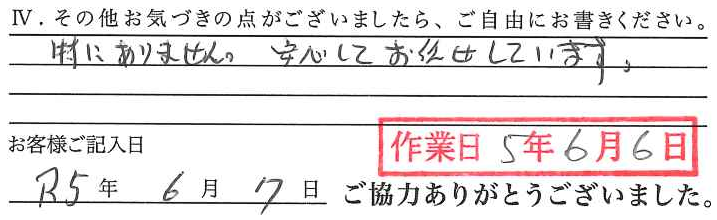 Ⅳ．その他お気づきの点がございましたら、ご自由にお書きください。
特にありません。安心してお任せしています。
お客様ご記入日
作業日 5年6月6日
R5年 6月7日 ご協力ありがとうございました。